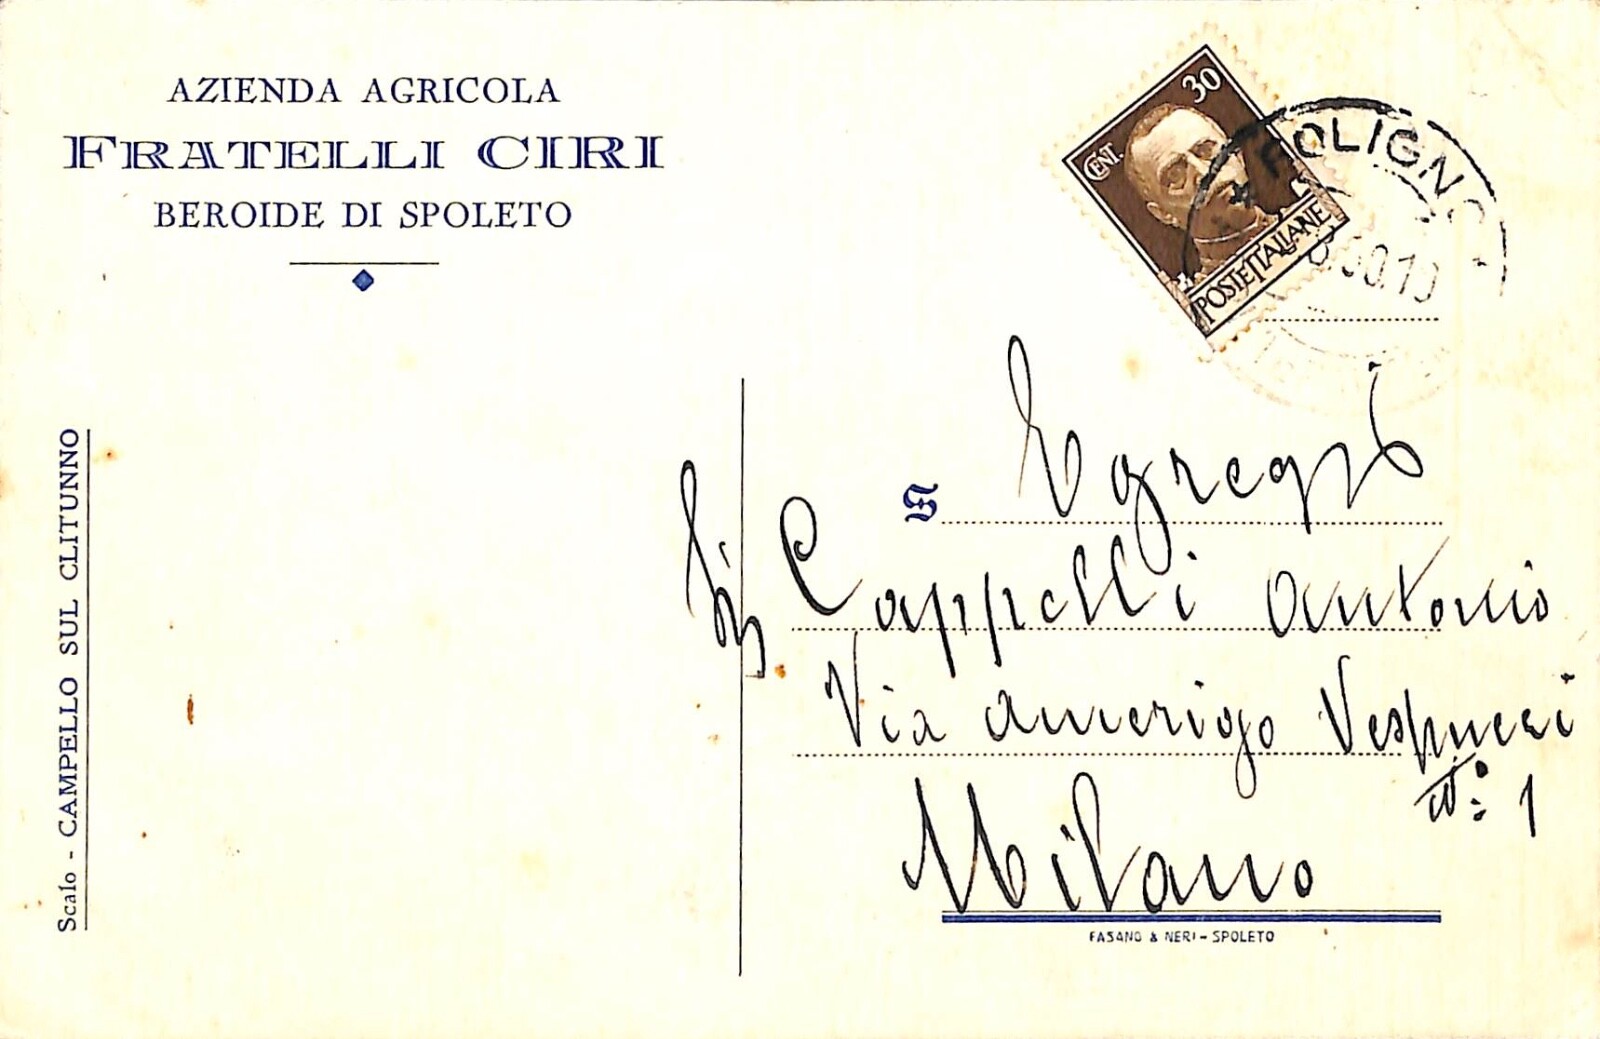 AZIENDA AGRICOLA
FRATELLI CIRI
BEROIDE DI SPOLETO
Scalo - CAMPELLO SUL CLITUNNO
30
CENT.
POSTE ITALIANE
FOLIGNO
S
Egregio
Sig Cappelli Antonio
Via Amerigo Vespucci
N° 1
Milano
FASANO & NERI - SPOLETO